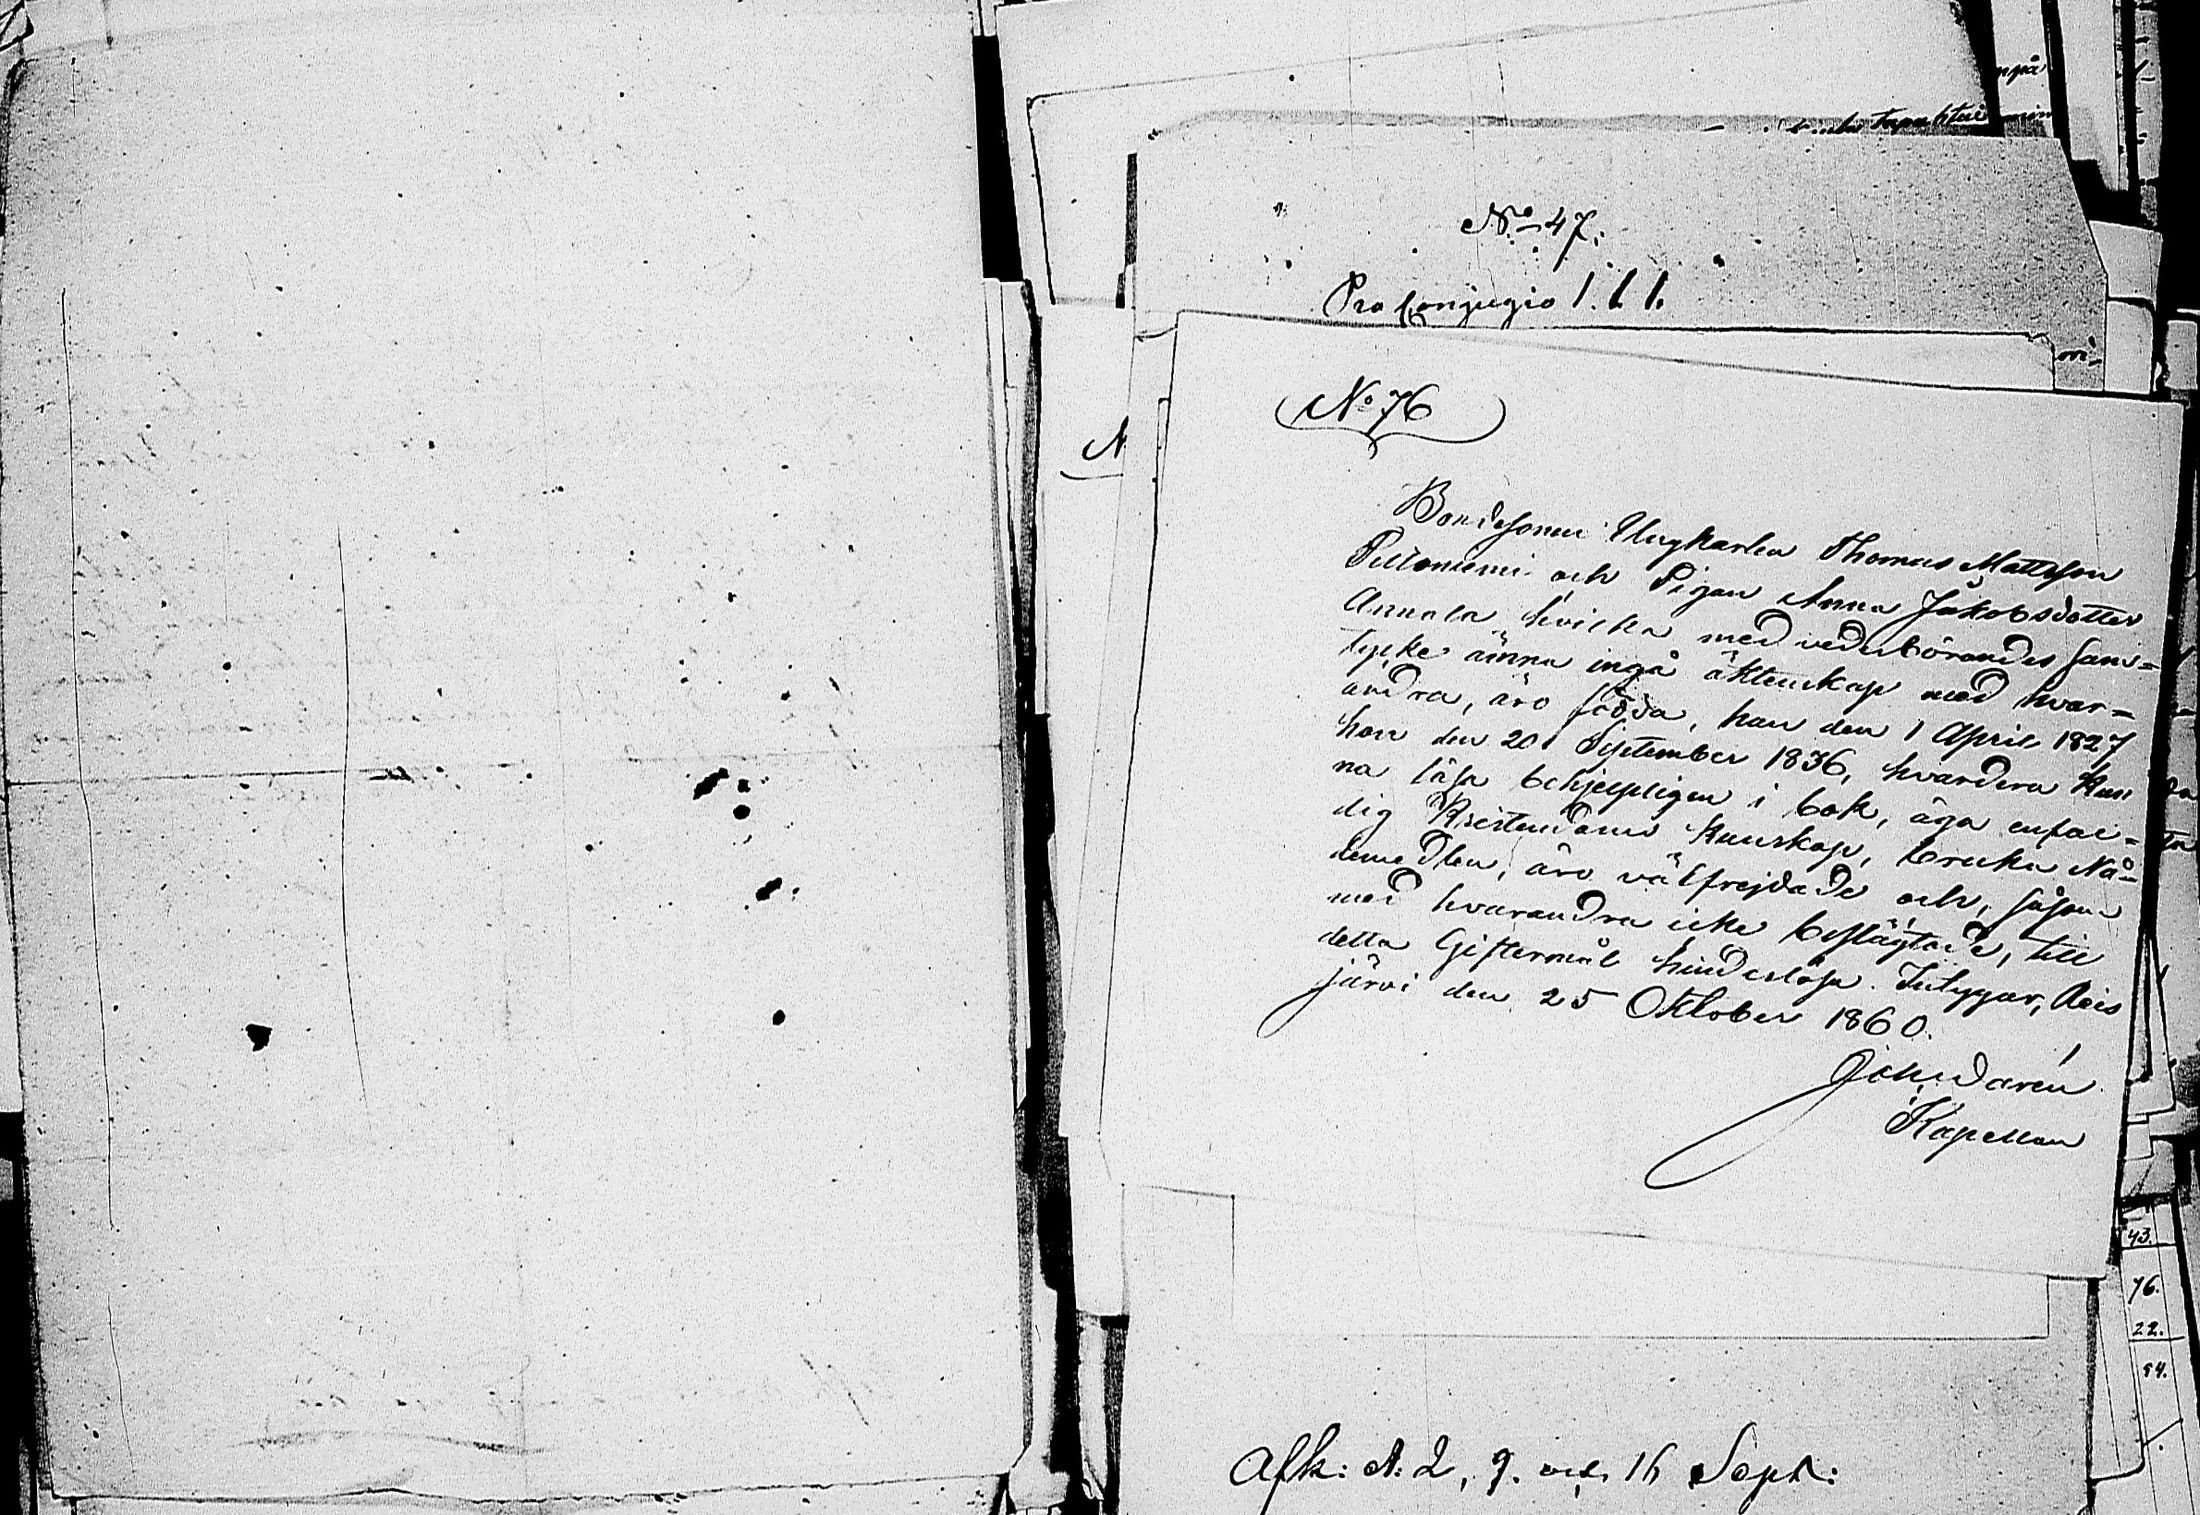 No 47.
Pro Conjugio 1. 1. 1.
No 76
Bondesonen Ungkarlen Thomas Mattsson
och Pigan Anna Jakobsdotter
Annala hvilka med vederbörandes sam=
tycke ämna ingå äktenskap med hvar=
andra, äro födda, han den 1 April 1827
hon den 20 September 1836, hvardera kun
na läsa behjelpligen i bok, äga enfal=
dig Kristendoms kunskap, bruka Nå=
demedlen, äro välfrejdade och, såsom
med hvarandra icke beslägtade, till
detta Giftermål hinderlösa. Intygar, Reis
järvi den 25 Oktober 1860.
Kapellan
Afk: d: 2, 9. och 16 Sept:
43.
76.
22.
94.